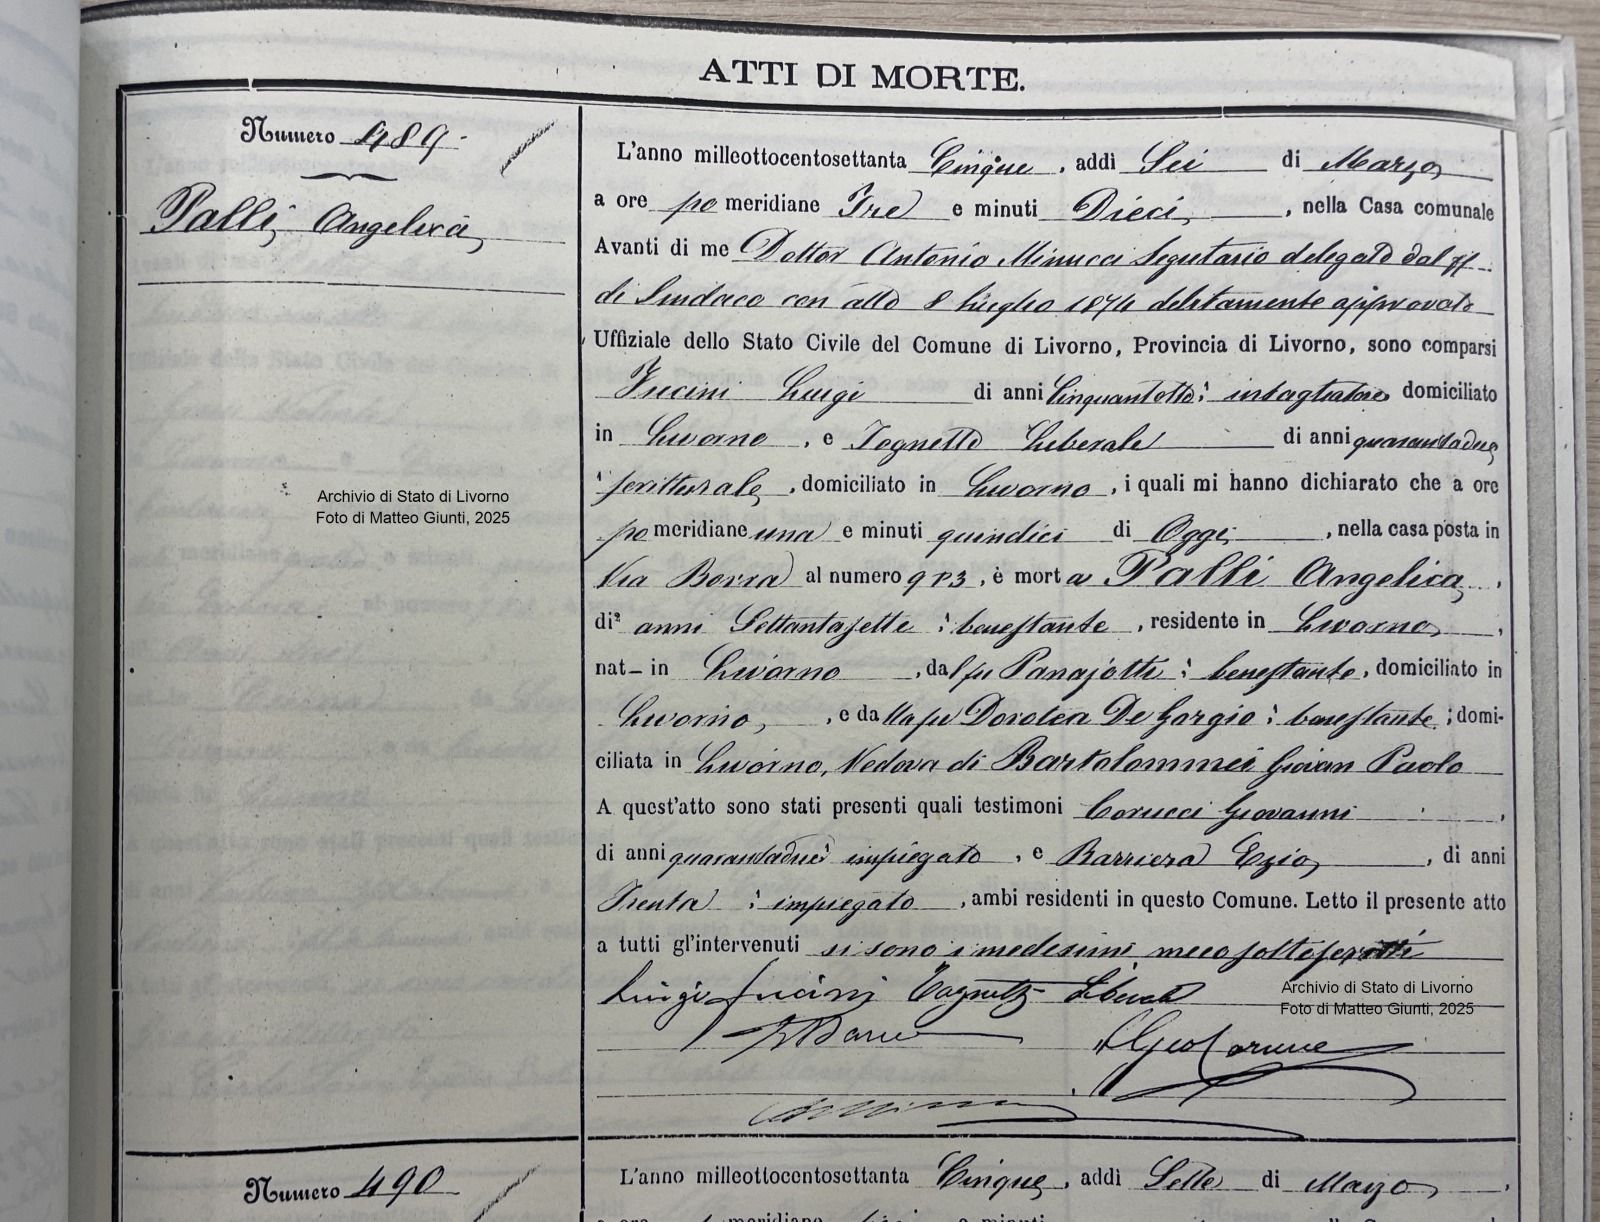 ATTI DI MORTE.
Numero 489.
Palli Angelica
Archivio di Stato di Livorno
Foto di Matteo Giunti, 2025
L'anno milleottocentosettanta Cinque, addì Sei di Marzo
a ore po meridiane Tre e minuti Dieci, nella Casa comunale
Avanti di me Dottor Antonio Minucci Segretario delegato dal ff.
di Sindaco con atto 8 Luglio 1874 debitamente approvato
Uffiziale dello Stato Civile del Comune di Livorno, Provincia di Livorno, sono comparsi
Fucini Luigi di anni Cinquantotto: intagliatore domiciliato
in Livorno, e Tognetti Liberale di anni quarantadue
scritturale, domiciliato in Livorno, i quali mi hanno dichiarato che a ore
po meridiane una e minuti quindici di Oggi, nella casa posta in
Via Borra al numero 9 P3, è morta Palli Angelica,
di anni Settantasette: benestante, residente in Livorno,
nat- in Livorno, dal fu Panajotti: benestante, domiciliato in
Livorno, e dalla fu Dorotea De Gorgio: benestante; domi-
ciliata in Livorno, Vedova di Bartolommei Giovan Paolo
A quest'atto sono stati presenti quali testimoni Corucci Giovanni,
di anni quarantadue impiegato, e Barriera Ezio, di anni
Trenta: impiegato, ambi residenti in questo Comune. Letto il presente atto
a tutti gl'intervenuti si sono i medesimi meco sottoscritti
Luigi Fucini Tognetti Liberale
Archivio di Stato di Livorno
Foto di Matteo Giunti, 2025
Numero 490
L'anno milleottocentosettanta Cinque, addì Sette di Marzo,